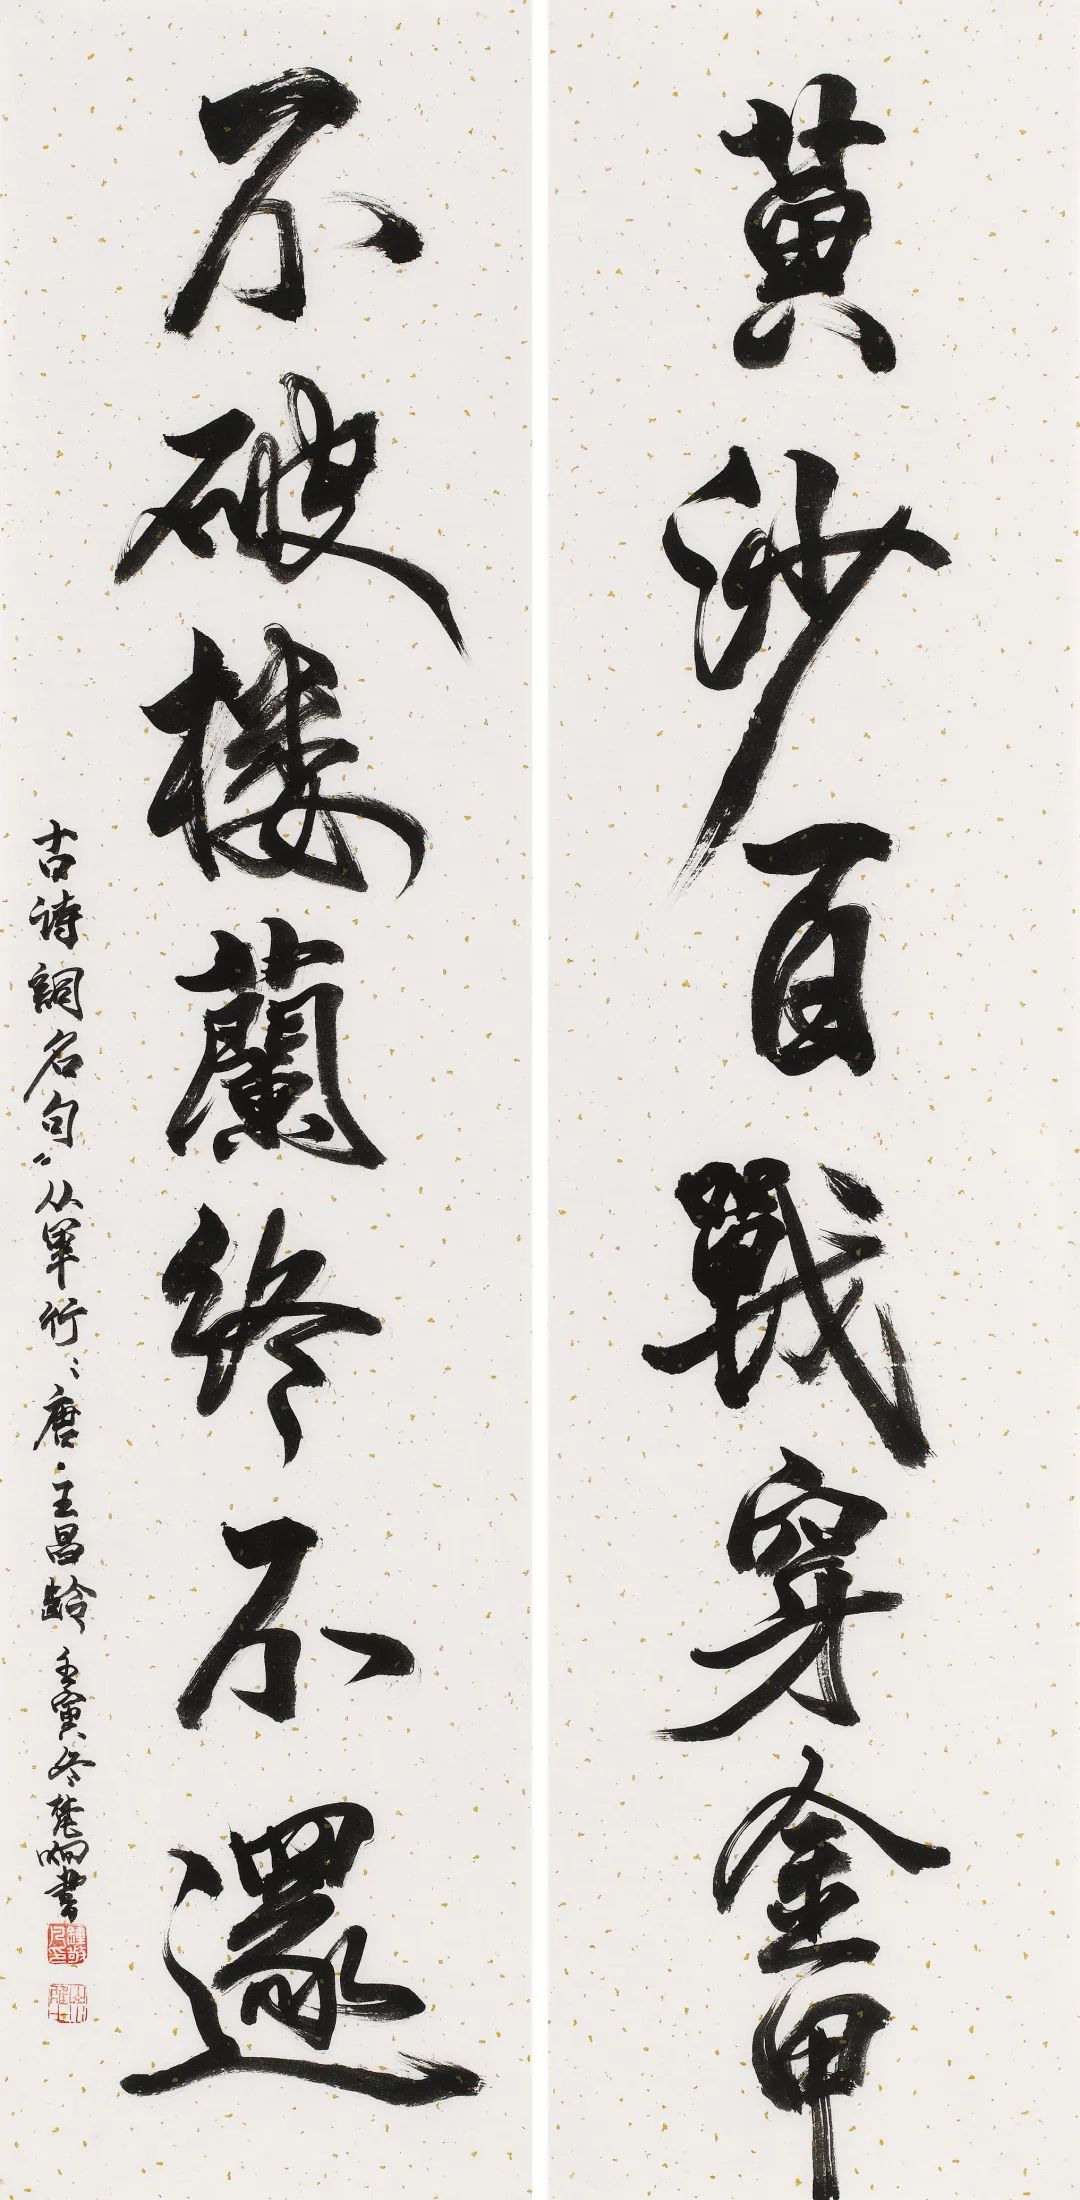 黄沙百戰穿金甲
不破楼蘭終不還
古诗詞名句“从軍行”唐·王昌龄 壬寅冬 書